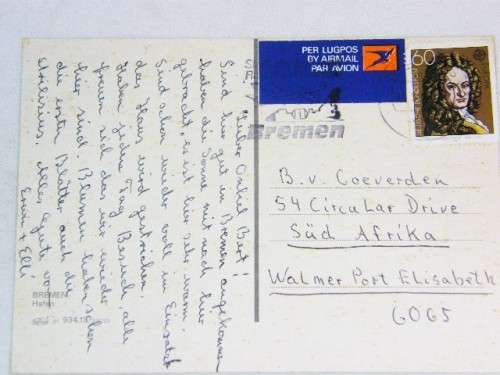 Lieber Onkel Bert!
Sind hier gut in Bremen angekommen
haben die Sonne mit nach hier
gebracht, es ist hier sehr warm.
Sind schon wieder voll im Einsatz
das Haus wird gestrichen
Haben jeden Tag Besuch alle
freuen sich das wir wieder
hier sind. Blumen haben schon
die ersten Blätter auch die
Alles Gute von
Erwin + Elli
BREMEN
Hafen
PER LUGPOS
BY AIRMAIL
PAR AVION
60
Bremen
B. v. Coeverden
54 Circular Drive
Süd Afrika
Walmer Port Elisabeth
6065